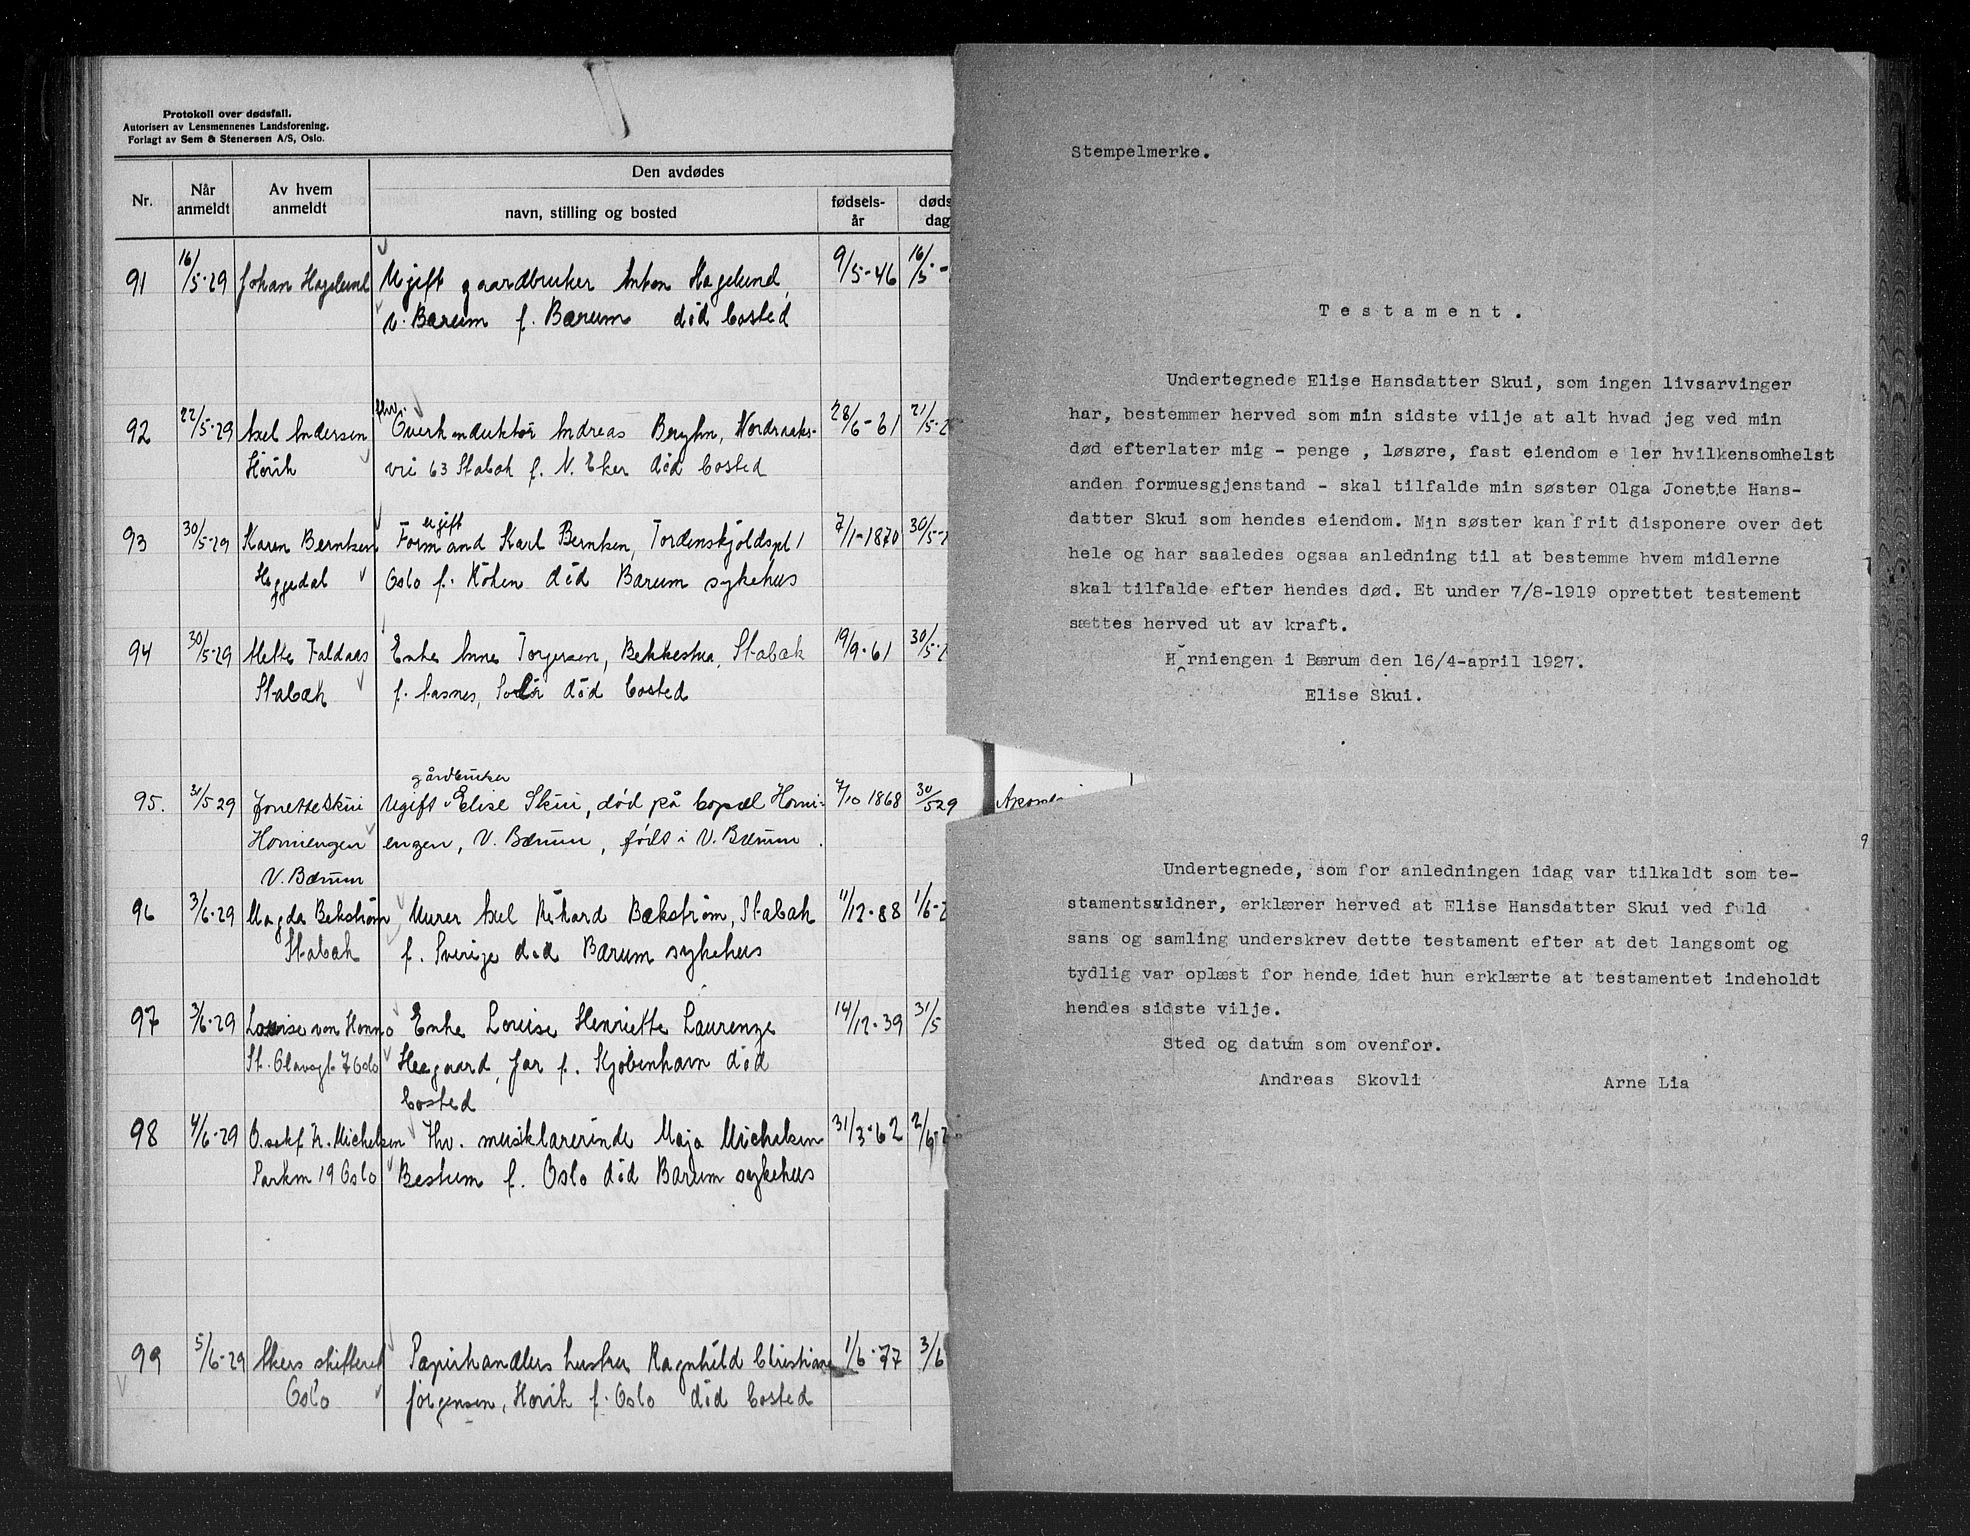 Protokoll over dødsfall.
Autorisert av Lensmennenes Landsforening.
Forlagt av Sem & Stenersen A/S, Oslo.
Nr. Når anmeldt Av hvem anmeldt Den avdødes
navn, stilling og bosted fødsels-år døds dag
91 16/5-29 Johan Hagelund Ugift gaardbruker Anton Hagelund, 9/5-46 16/5-
V. Bærum f. Bærum død bosted
92 22/5-29 Axel Andersen fhv. Overkonduktør Andreas Berghn, Nordraaks- 28/6-61 21/5-2
Høvik vei 63 Stabæk f. N. Eker død bosted
93 30/5-29 Karen Berntsen Formand egift Karl Berntsen, Tordenskjoldspl 1 7/1-1870 30/5-2
Heggedal Oslo f. Røken død Bærum sykehus
94 30/5-29 Mette Faldaas Enke Anne Torgersen, Bekkestua, Stabæk 19/9-61 30/5-2
Stabæk f. Aasnes, Solør død bosted
gårdbruker
95. 31/5 29 Jonette Skui Ugift Elise Skui, død på bopæl Horni- 7/10 1868 30/5 29
Horniengen engen, V. Bærum, født i V. Bærum.
V. Bærum
96 3/6-29 Magda Bekstrøm Murer Axel Rikard Bækstrøm, Stabæk 11/12-88 1/6-2
Stabæk f. Sverige død Bærum sykehus
97 3/6-29 Louise von Hanno Enke Louise Henriette Laurenze 14/12-39 31/5
St. Olavsgt. 7 Oslo Heegaard, Jar f. Kjøbenhavn død
bosted
98 4/6-29 O.sakf. H. Michelsen Fhv. musiklærerinde Maja Michelsen 31/3-62 2/6-2
Parkvn 19 Oslo Bestum f. Oslo død Bærum sykehus
99 5/6-29 Akers skifteret Papirhandlers hustru Ragnhild Christiane 1/6-77 3/6
Oslo Jørgensen, Høvik f. Oslo død bosted
Stempelmerke.
Testament.
Undertegnede Elise Hansdatter Skui, som ingen livsarvinger
har, bestemmer herved som min sidste vilje at alt hvad jeg ved min
død efterlater mig - penge , løsøre, fast eiendom e ler hvilkensomhelst
anden formuesgjenstand - skal tilfalde min søster Olga Jonette Hans-
datter Skui som hendes eiendom. Min søster kan frit disponere over det
hele og har saaledes ogsaa anledning til at bestemme hvem midlerne
skal tilfalde efter hendes død. Et under 7/8-1919 oprettet testement
sættes herved ut av kraft.
Horniengen i Bærum den 16/4-april 1927.
Elise Skui.
Undertegnede, som for anledningen idag var tilkaldt som te-
stamentsvidner, erklærer herved at Elise Hansdatter Skui ved fuld
sans og samling underskrev dette testament efter at det langsomt og
tydlig var oplæst for hende idet hun erklærte at testamentet indeholdt
hendes sidste vilje.
Sted og datum som ovenfor.
Andreas Skovli Arne Lia